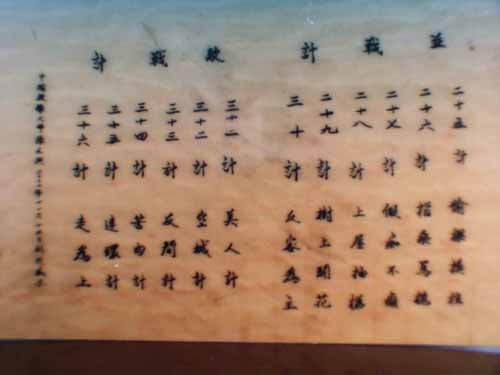 並戰計
二十五計 偷樑換柱
二十六計 指桑罵槐
二十七計 假痴不癲
二十八計 上屋抽梯
二十九計 樹上開花
三十計 反客為主
敗戰計
三十一計 美人計
三十二計 空城計
三十三計 反間計
三十四計 苦肉計
三十五計 連環計
三十六計 走為上